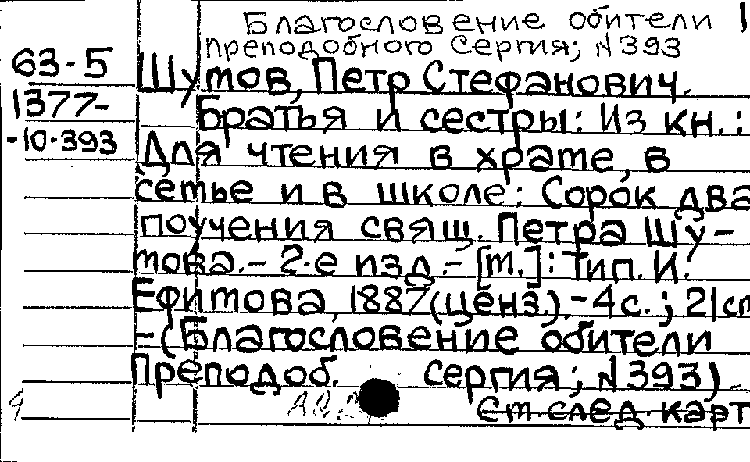 Благословение обители
Преподобного Сергия; N 393
63-5
Шумов, Петр Стефанович.
1377-
Братья и сестры: Из кн.:
-10·393
Для чтения в храме, в
семье и в школе: Сорок два
поучения свящ. Петра Шу-
мова. - 2-е изд. - [М.]: Тип. И.
Ефимова, 1887 (ценз.). - 4 с.; 21 см
- (Благословение обители
Преподоб. Сергия; N 393)
См. след. карт